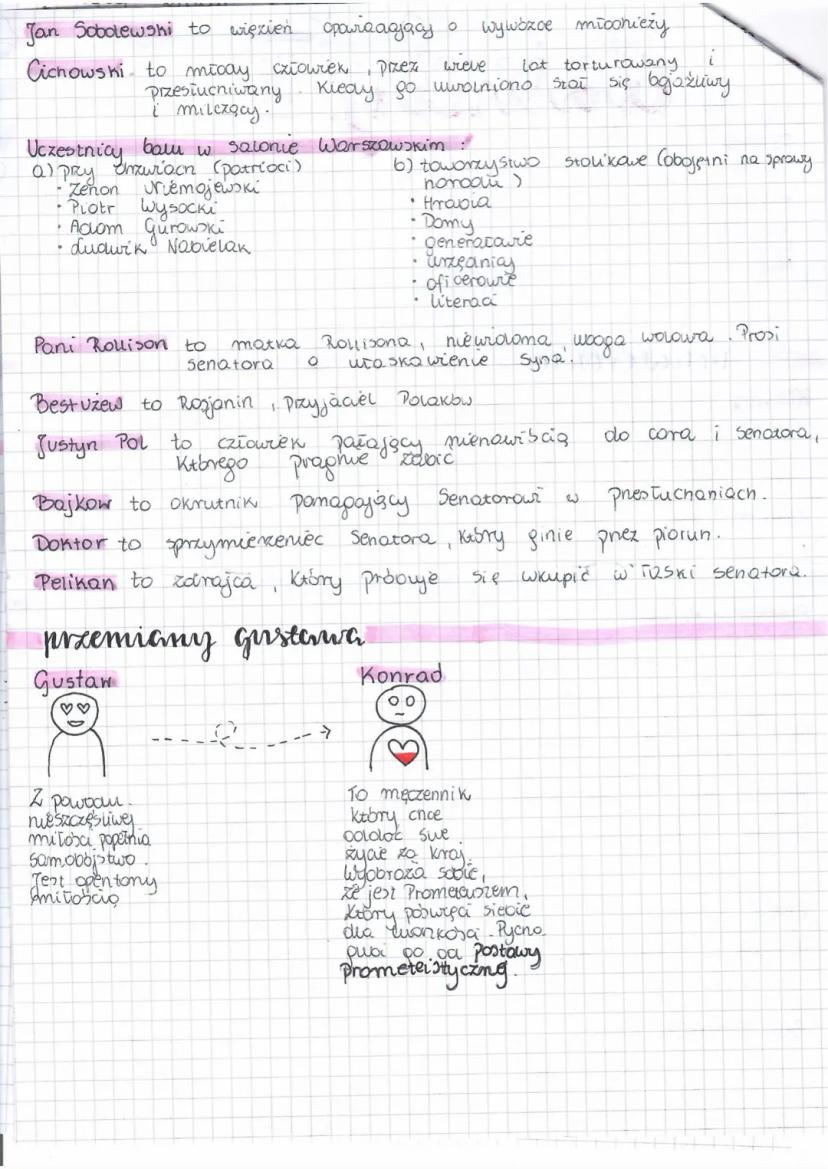 Jan Sobolewski to więzień opowiadający o wywózce młodzieży
Cichowski to młody człowiek, przez wiele lat torturowany i
przesłuchiwany. Kiedy go uwolniono stał się bojaźliwy
i milczący.
Uczestnicy balu w salonie Warszawskim:
a) przy drzwiach (patrioci)
· Zenon Niemojewski
· Piotr Wysocki
· Adam Gurowski
· Ludwik Nabielak
b) towarzystwo stolikowe (obojętni na sprawy
narodu)
· Hrabia
· Damy
· generałowie
· urzędnicy
· oficerowie
· literaci
Pani Rollison to matka Rollisona, niewidoma, uboga wdowa. Prosi
senatora o ułaskawienie syna.
Bestużew to Rosjanin, przyjaciel Polaków
Justyn Pol to człowiek pałający nienawiścią do cara i senatora,
którego pragnie zabić
Bajkow to okrutnik pomagający Senatorowi w przesłuchaniach.
Doktor to sprzymierzeniec Senatora, który ginie przez piorun.
Pelikan to zdrajca, który próbuje się wkupić w łaski senatora.
przemiany gustawa
Gustaw
Z powodu
nieszczęśliwej
miłości popełnia
samobójstwo.
Jest opętany
miłością
Konrad
To męczennik
który chce
oddać swe
życie za kraj.
Wyobraża sobie,
że jest Prometeuszem,
który poświęci siebie
dla ludzkości. Pycha
gubi go od postawy
prometeistycznej.